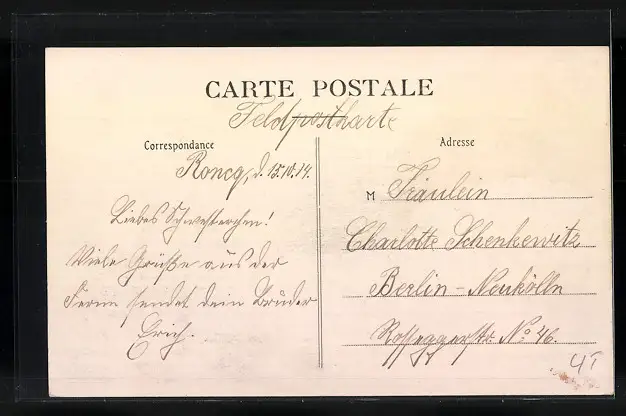 CARTE POSTALE
Feldpostkarte
Correspondance
Roncq, d. 15.10.14.
Liebes Schwesterchen!
Viele Grüße aus der
Ferne sendet dein Bruder
Erich.
Adresse
M Fräulein
Charlotte Schenkewitz
Berlin-Neukölln
Roseggerstr. No 46.